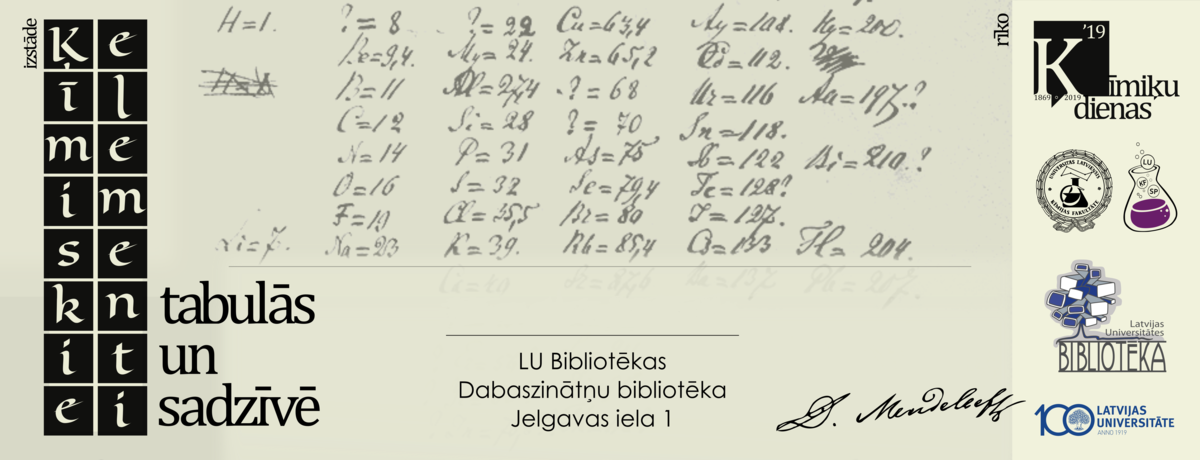 izstāde
ķīmiskie
elementi
tabulās
un
sadzīvē
H=1. ?=8 ?=22 Cu=63,4 Ag=108. Hg=200.
Be=9,4. Mg=24. Zn=65,2 Cd=112.
B=11 Al=27,4 ?=68 Ur=116 Au=197.?
C=12 Si=28 ?=70 Sn=118.
N=14 P=31 As=75 Sb=122 Bi=210?
O=16 S=32 Se=79,4 Te=128?
F=19 Cl=35,5 Br=80 I=127.
Li=7. Na=23 K=39. Rb=85,4 Cs=133 Tl=204.
Ba=137 Pb=207.
LU Bibliotēkas
Dabaszinātņu bibliotēka
Jelgavas iela 1
D. Mendeleeff
rīko
K '19
1869 2019
īmiķu
dienas
UNIVERSITAS LATVIENSIS
ĶĪMIJAS FAKULTĀTE
LU
KF
SP
Latvijas
Universitātes
BIBLIOTĒKA
100 LATVIJAS
UNIVERSITĀTE
ANNO 1919